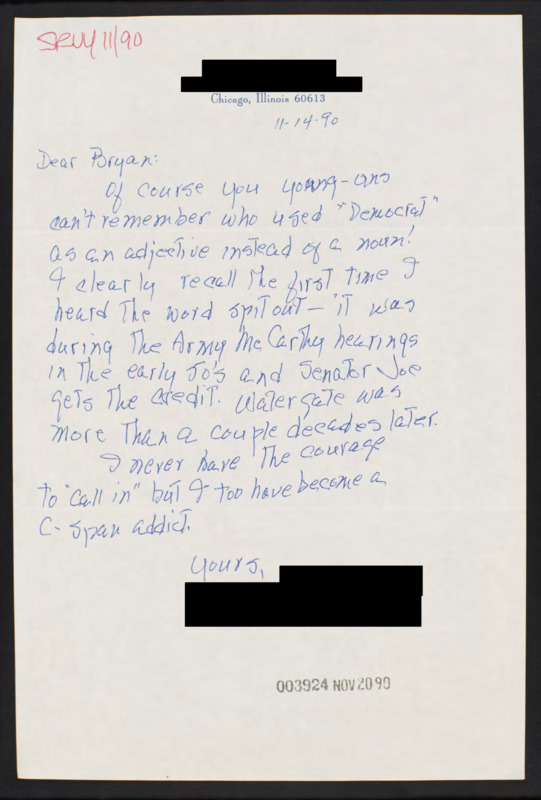 SRVY 11/90
Chicago, Illinois 60613
11-14-90
Dear Bryan:
Of course you young-uns
can't remember who used "Democrat"
as an adjective instead of a noun!
I clearly recall the first time I
heard the word spit out - it was
during the Army McCarthy hearings
in the early 50's and Senator Joe
gets the credit. Watergate was
more than a couple decades later.
I never have the courage
to "call in" but I too have become a
C-Span addict.
Yours,
003924 NOV 20 90